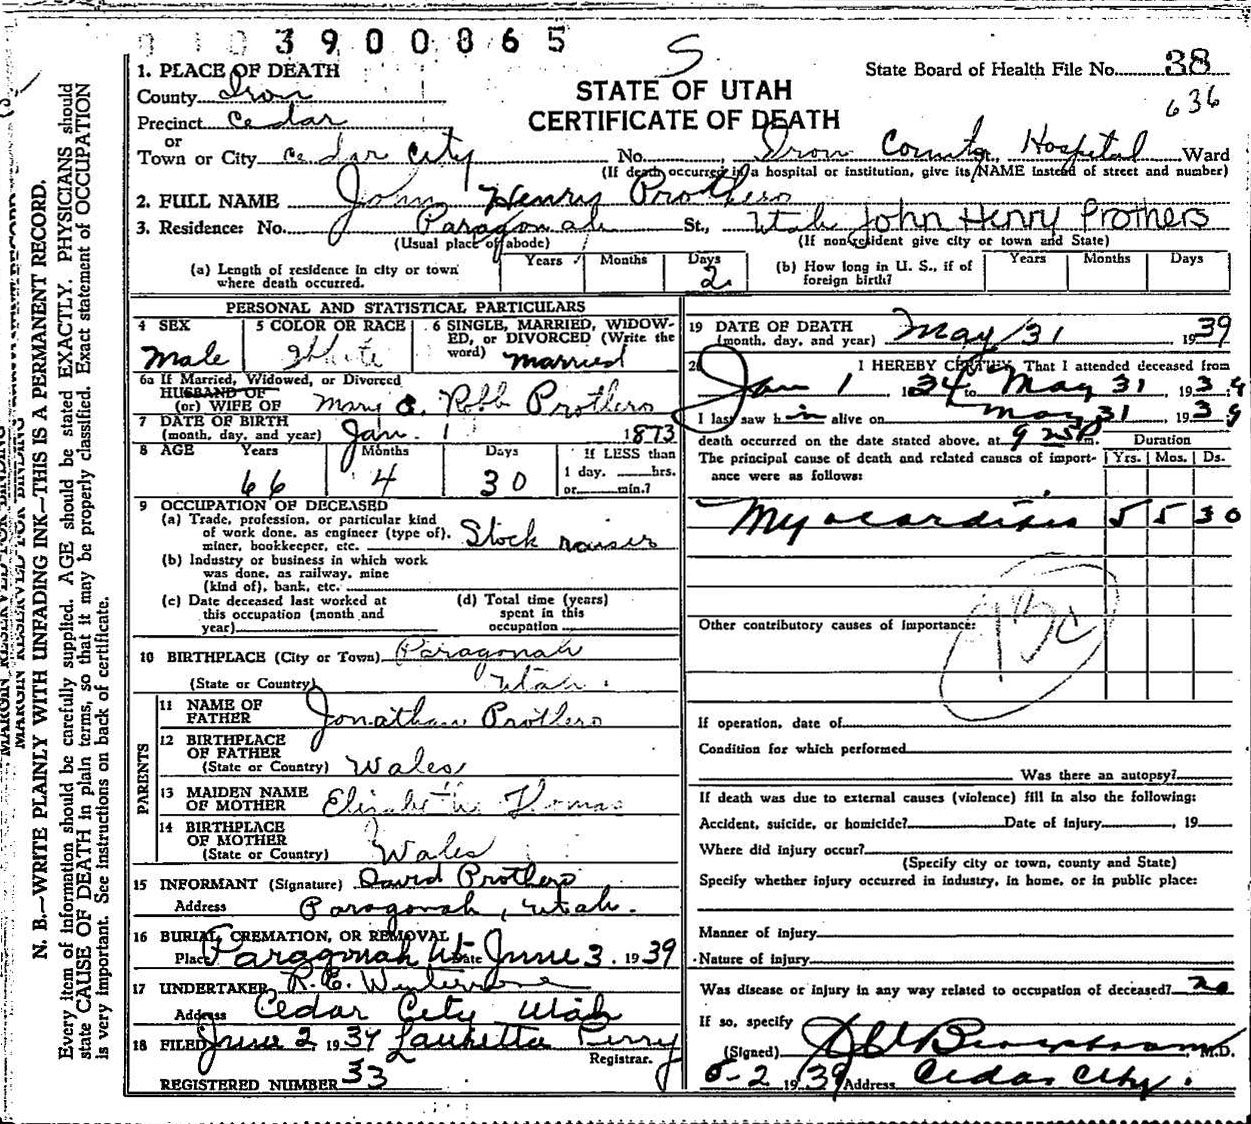 3900865
S
1. PLACE OF DEATH
County Iron
Precinct Cedar
or
Town or City Cedar City
STATE OF UTAH
CERTIFICATE OF DEATH
State Board of Health File No. 38
636
No. , Iron County St., Hospital Ward
(If death occurred in a hospital or institution, give its NAME instead of street and number)
2. FULL NAME John Henry Prothero
3. Residence: No. Paragonah St., Utah John Henry Prothers
(Usual place of abode) (If nonresident give city or town and State)
(a) Length of residence in city or town where death occurred. Years Months Days 2
(b) How long in U. S., if of foreign birth? Years Months Days
PERSONAL AND STATISTICAL PARTICULARS
4 SEX Male
5 COLOR OR RACE White
6 SINGLE, MARRIED, WIDOWED, or DIVORCED (Write the word) Married
6a If Married, Widowed, or Divorced
HUSBAND OF
(or) WIFE OF Mary E. Robb Prothero
7 DATE OF BIRTH
(month, day, and year) Jan. 1 1873
8 AGE Years 66 Months 4 Days 30 If LESS than 1 day, hrs. or min.?
9 OCCUPATION OF DECEASED
(a) Trade, profession, or particular kind of work done, as engineer (type of), miner, bookkeeper, etc. Stock raiser
(b) Industry or business in which work was done, as railway, mine (kind of), bank, etc.
(c) Date deceased last worked at this occupation (month and year)
(d) Total time (years) spent in this occupation
10 BIRTHPLACE (City or Town) Paragonah
(State or Country) Utah.
PARENTS
11 NAME OF FATHER Jonathan Prothero
12 BIRTHPLACE OF FATHER
(State or Country) Wales
13 MAIDEN NAME OF MOTHER Elizabeth Thomas
14 BIRTHPLACE OF MOTHER
(State or Country) Wales
15 INFORMANT (Signature) David Prothero
Address Paragonah, Utah.
16 BURIAL, CREMATION, OR REMOVAL
Place Paragonah Ut Date June 3. 1939
17 UNDERTAKER R.E.
Address Cedar City Utah
18 FILED June 2, 1939 Lauretta Perry
Registrar.
REGISTERED NUMBER 33
19 DATE OF DEATH
(month, day, and year) May 31 1939
20 I HEREBY CERTIFY, That I attended deceased from
Jan 1, 1934 to May 31, 1939
I last saw him alive on May 31, 1939
death occurred on the date stated above, at 9 25 m.
Duration
The principal cause of death and related causes of importance were as follows: Yrs. Mos. Ds.
Myocarditis 5 5 30
93c
Other contributory causes of importance:
If operation, date of
Condition for which performed
Was there an autopsy?
If death was due to external causes (violence) fill in also the following:
Accident, suicide, or homicide? Date of injury , 19
Where did injury occur?
(Specify city or town, county and State)
Specify whether injury occurred in industry, in home, or in public place:
Manner of injury
Nature of injury
Was disease or injury in any way related to occupation of deceased? no
If so, specify
(Signed) , M.D.
6-2 1939 Address Cedar City.
MARGIN RESERVED FOR BINDING
N. B.—WRITE PLAINLY WITH UNFADING INK—THIS IS A PERMANENT RECORD.
Every item of information should be carefully supplied. AGE should be stated EXACTLY. PHYSICIANS should
state CAUSE OF DEATH in plain terms, so that it may be properly classified. Exact statement of OCCUPATION
is very important. See instructions on back of certificate.